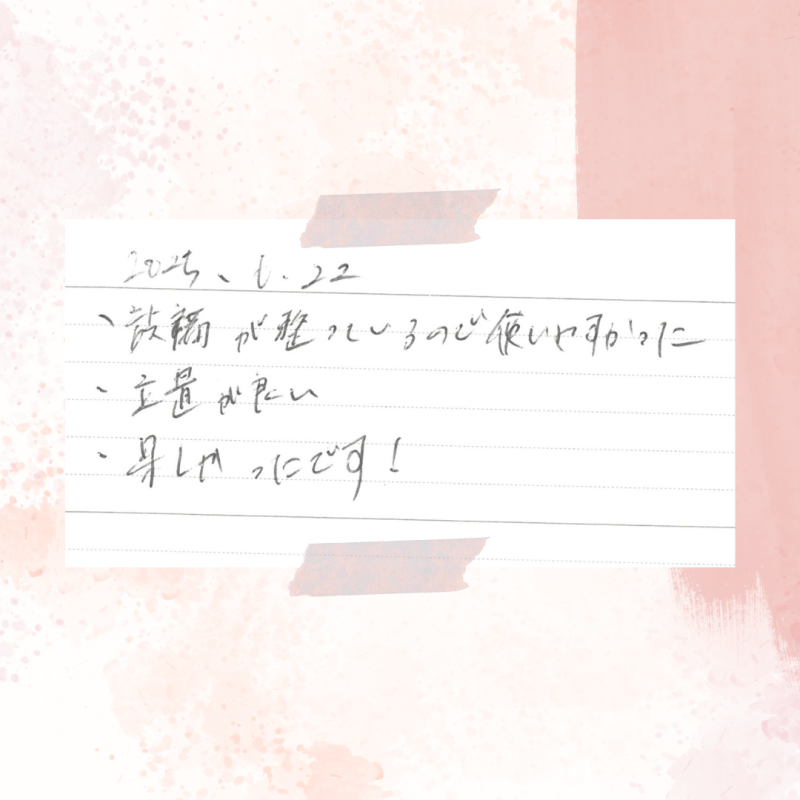 2025、6.22
・設備が整っているので使いやすかった
・立置が良い
・楽しかったです!